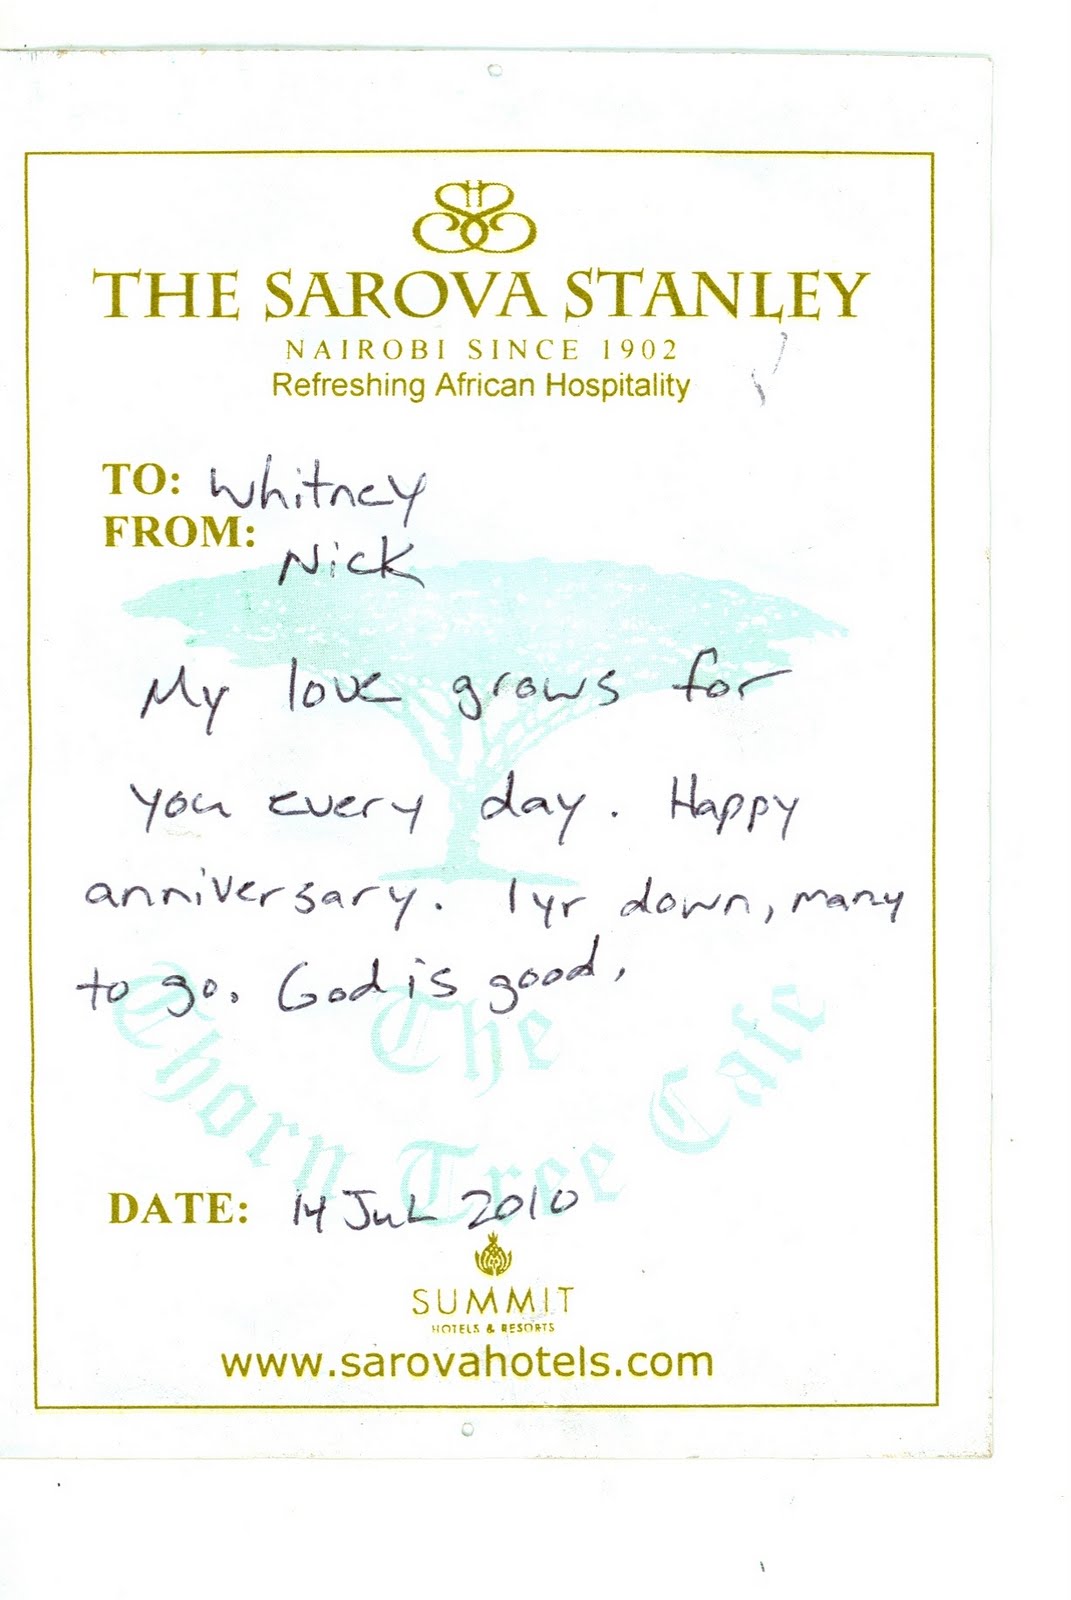 THE SAROVA STANLEY
NAIROBI SINCE 1902
Refreshing African Hospitality
TO: Whitney
FROM: Nick
My love grows for
you every day. Happy
anniversary. 1yr down, many
to go. God is good.
The
Thorn Tree Cafe
DATE: 14 JuL 2010
SUMMIT
HOTELS & RESORTS
www.sarovahotels.com